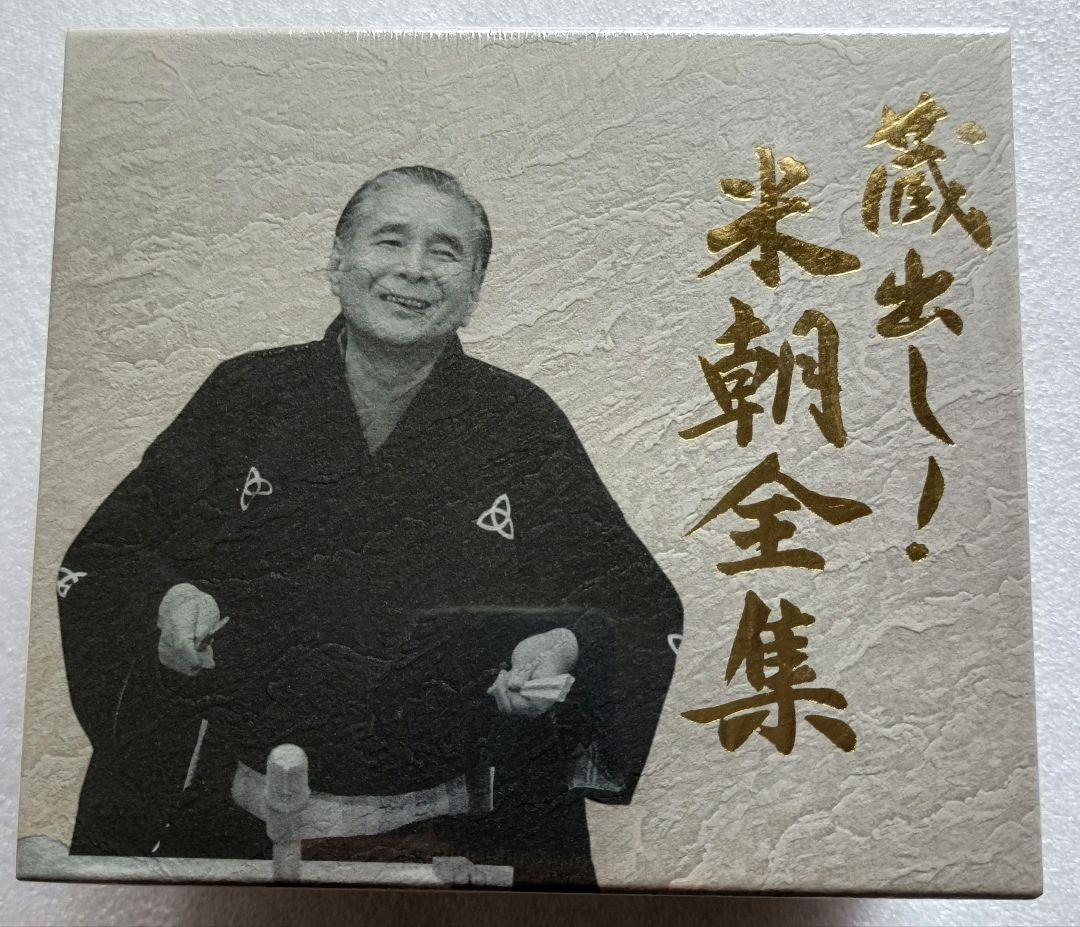 蔵出し！
米朝全集